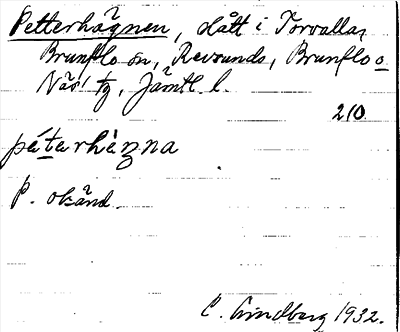 Petterhägnen, slått i Torvalla,
Brunflo sn, Revsunds, Brunflo o
Näs' tg, Jämtl. l.
210
pétarhèzna
P. okänd.
C. Lindberg 1932.